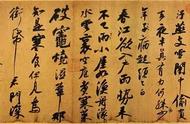 汙燕支雪闇中偷負
去夜半真有力何殊少
年病起頭已白
春江欲入戶雨勢來
不已小屋如漁舟濛濛
水雲裏空庖煮寒菜
破竈燒濕葦那
知是寒食但見烏
銜帋君門深